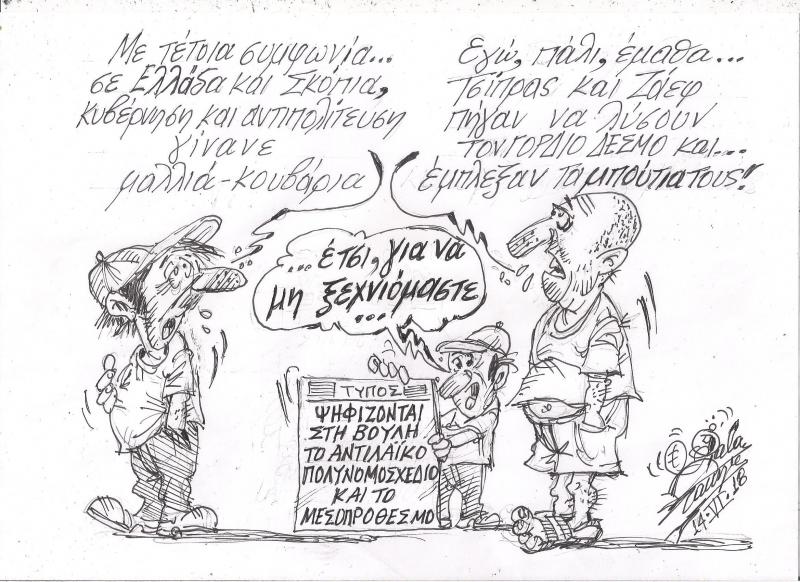 Με τέτοια συμφωνία...
σε Ελλάδα και Σκόπια,
κυβέρνηση και αντιπολίτευση
γίνανε
μαλλιά-κουβάρια
Εγώ, πάλι, έμαθα...
Τσίπρας και Ζάεφ
πήγαν να λύσουν
ΤΟΝ ΓΟΡΔΙΟ ΔΕΣΜΟ και...
έμπλεξαν τα μπούτια τους!
... έτσι, για να
μη ξεχνιόμαστε
...
ΤΥΠΟΣ
ΨΗΦΙΖΟΝΤΑΙ
ΣΤΗ ΒΟΥΛΗ
ΤΟ ΑΝΤΙΛΑΪΚΟ
ΠΟΛΥΝΟΜΟΣΧΕΔΙΟ
ΚΑΙ ΤΟ
ΜΕΣΟΠΡΟΘΕΣΜΟ
14-VI-18